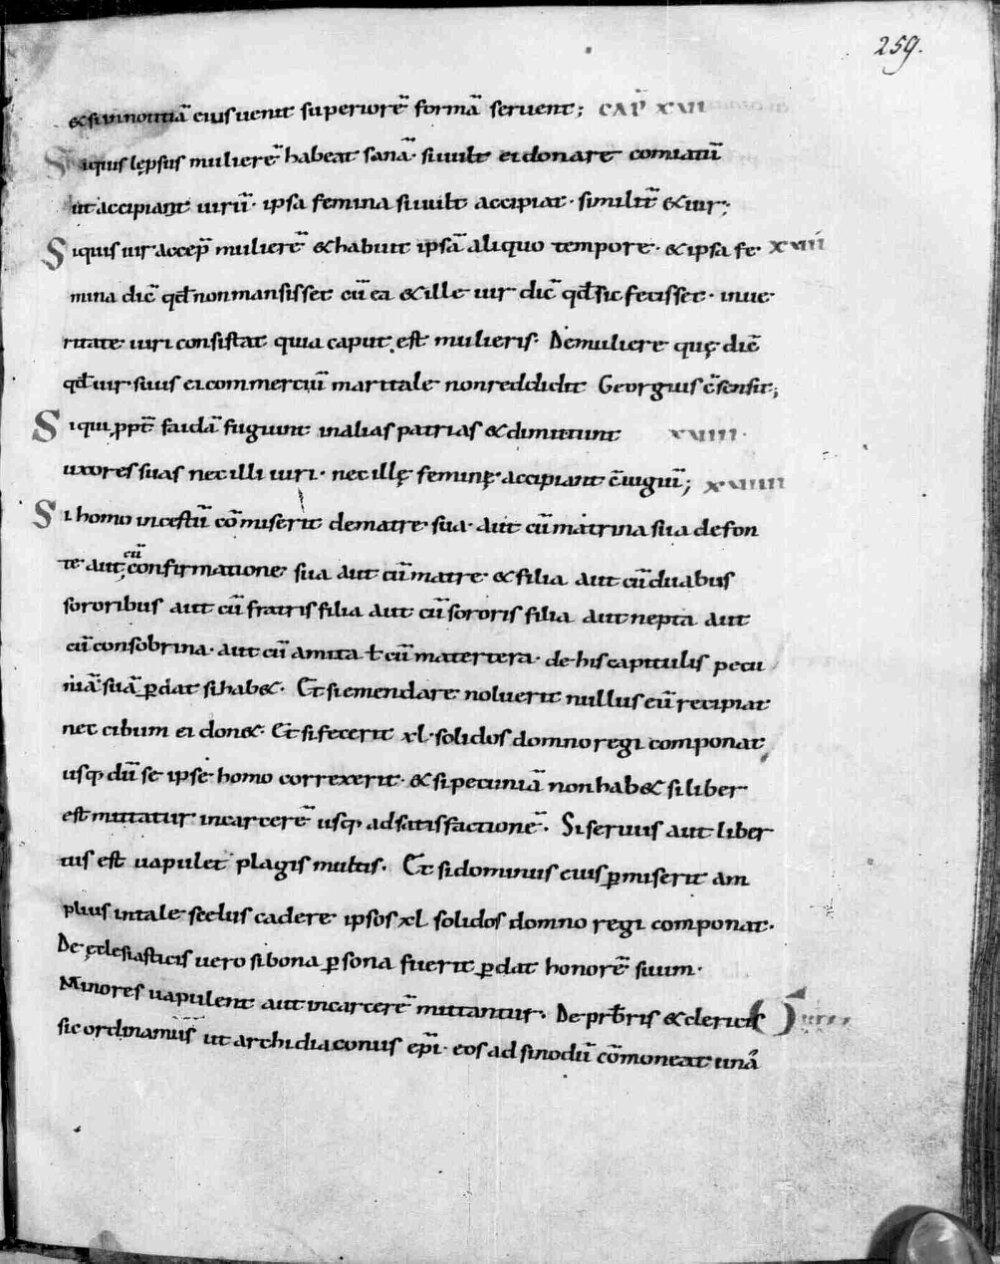 259.
& si in notitiã eius uenit superiorẽ formã seruent; CAP̃ XVII
Siquis lępsus mulierẽ habeat sanã· si uult ei donare comiatũ
ut accipiant uirũ· ipsa femina si uult accipiat· similit̃ & uir;
Siquis uir accep̃ mulierẽ & habuit ipsã aliquo tempore· & ipsa fe· XVIII
mina dic̃ qđ non mansisset cũ ea & ille uir dic̃ qđ sic fecisset· in ue
ritate uiri consistat quia caput est mulieris· De muliere quę dic̃
qđ uir suus ei commerciũ maritale non reddidit Georgius c̃sensit;
Siqui ꝓpt̃ faidã fugiunt in alias patrias & dimittunt XVIIII·
uxores suas nec illi uiri· nec illę feminę· accipiant c̃iugiũ; XVIIIII
Si homo incestũ cõmiserit de matre sua· aut cũ matrina sua de fon
te aut cũ confirmatione sua aut cũ matre· & filia aut cũ duabus
sororibus aut cũ fratris filia aut cũ sororis filia aut nepta aut
cũ consobrina· aut cũ amita ł cũ matertera· de his capitulis pecu
niã suã ꝑdat si hab&· Et si emendare noluerit nullus eũ recipiat
nec cibum ei don&· Et si fecerit xl· solidos domno regi componat
usq; dũ se ipse homo correxerit· & si pecuniã non hab& si liber
est mittatur in carcerẽ usq; ad satisfactionẽ· Si seruus aut liber
tus est uapulet plagis multis· Et si dominus eius ꝑmiserit am
plius in tale scelus cadere ipsos xl solidos domno regi componat·
De ęclesiasticis uero si bona ꝑsona fuerit ꝑdat honorẽ suum·
Minores uapulent aut in carcerẽ mittantur· De prb̃ris & clericis
sic ordinamũs ut archidiaconus ep̃i· eos ad sinodũ cõmoneat unã